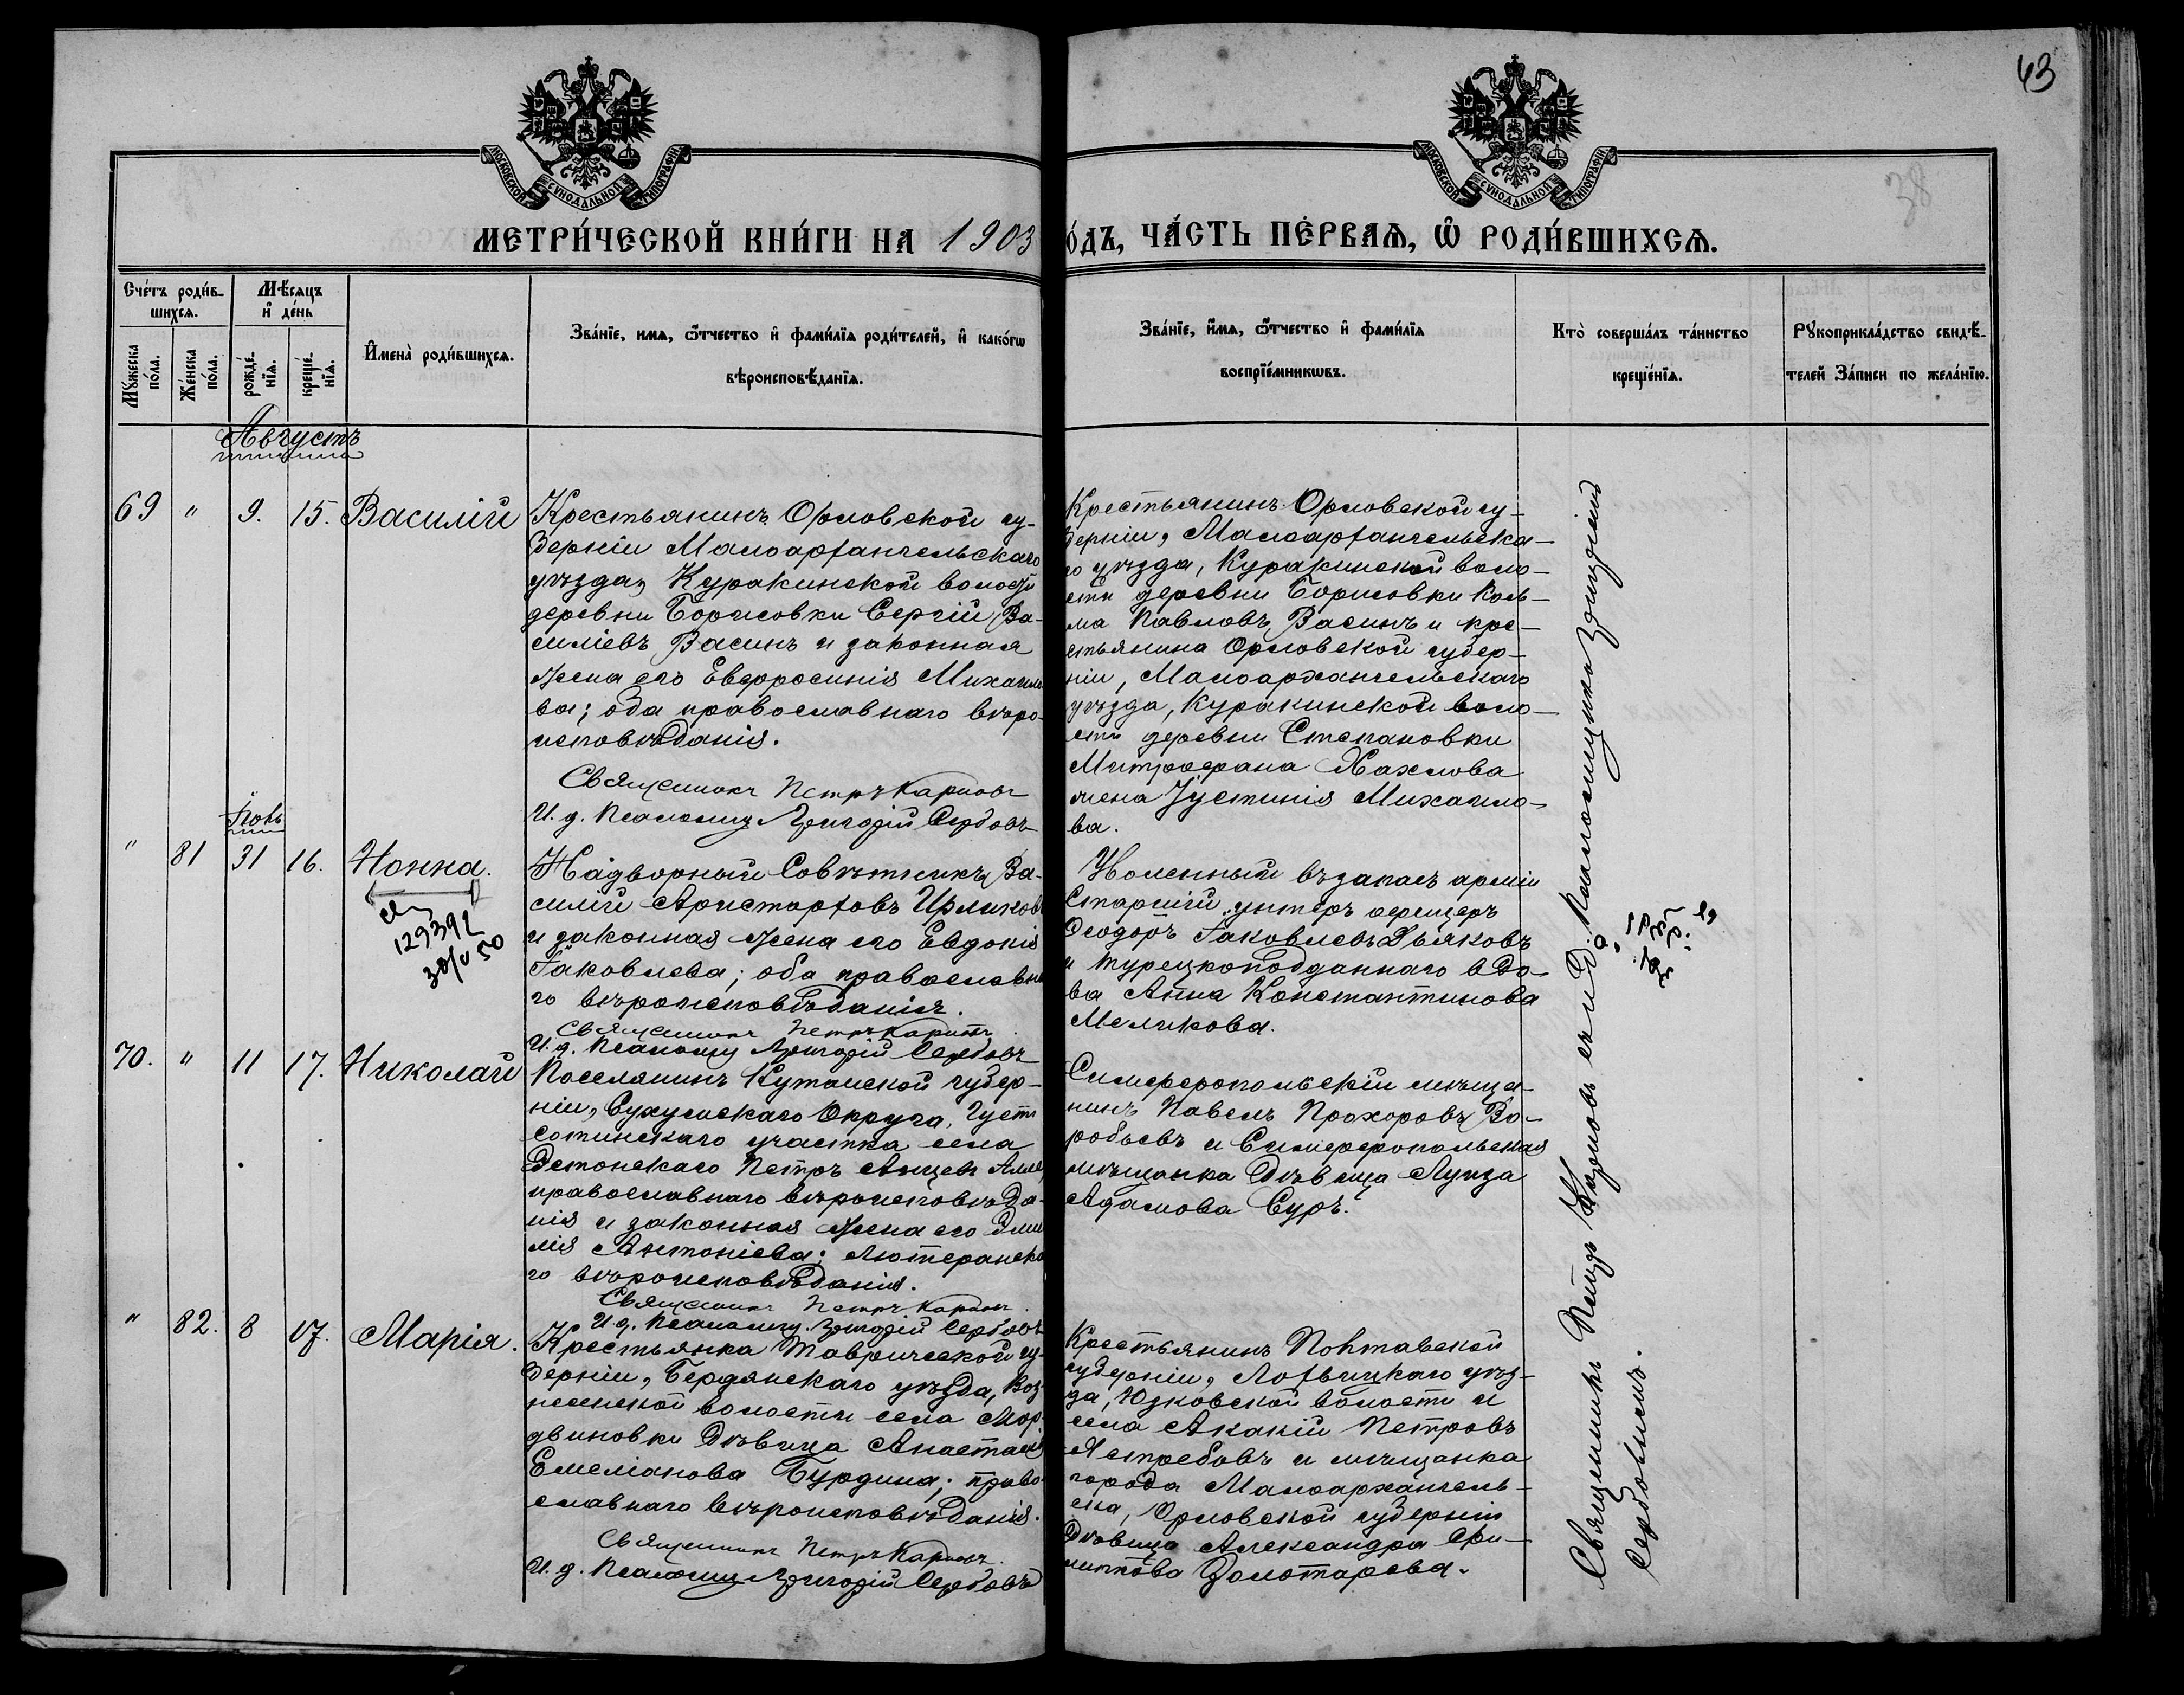 43
38
МОСКОВСКОЙ СѴНОДАЛЬНОЙ ТИПОГРАФІИ
МОСКОВСКОЙ СѴНОДАЛЬНОЙ ТИПОГРАФІИ
МЕТРИ́ЧЕСКОЙ КНИ́ГИ НА 1903
О́ДЪ, ЧА́СТЬ ПЕ́РВАЯ, Ѽ РОДИ́ВШИХСЯ.
Сче́тъ роди́в-
шихся.
Мꙋжеска по́ла.
Же́нска по́ла.
Мѣсяцъ и҆ де́нь
рожде́-
нїя.
креще́-
нїя.
И҆мена̀ роди́вшихся.
Зва́нїе, имя, ѿтчество и҆ фами́лїя роди́телей, и҆ како́гѡ
вѣроисповѣ́данїя.
Зва́нїе, и҆́мя, ѿтчество и҆ фами́лїя
воспрїе́мникѡвъ.
Кто̀ соверша́лъ та́инство
креще́нїя.
Рꙋкоприкла́дство свидѣ́-
телей За́писи по жела́нїю.
Августъ
69 " 9. 15. Василій
Крестьянинъ Орловской гу-
берніи Малоархангельскаго
уѣзда, Куракинской волости
деревни Борисовки Сергій Ва-
силіевъ Васинъ и законная
жена его Евфросинія Михаило
ва; оба православнаго вѣро-
исповѣданія.
Священникъ Петръ Карповъ
И. д. Псаломщ. Григорій Сербовъ
Крестьянинъ Орловской гу-
берніи, Малоархангельска-
го уѣзда, Куракинской воло-
сти деревни Борисовки Козь-
ма Павловъ Васинъ и кре-
стьянина Орловской губер-
ніи, Малоархангельскаго
уѣзда, Куракинской воло-
сти деревни Степановки
Митрофана Хахлова
жена Іустинія Михаило-
ва.
Іюль
" 81 31 16. Нонна.
129392
30/V 50
Надворный Совѣтникъ Ва-
силій Аристарховъ
и законная жена его Евдокія
Іаковлева; оба православна
го вѣроисповѣданія.
Священникъ Петръ Карповъ
И. д. Псаломщ Григорій Сербовъ
Уволенный въ запасъ арміи
Старшій унтеръ офицеръ
Ѳеодоръ Іаковлевъ Дьяковъ
и турецкоподданнаго вдо-
ва Анна Константинова
Меликова.
70. " 11 17. Николай
Поселянинъ Кутаиской губер-
ніи, Сухумскаго Округа, Гума
сотинскаго участка села
Эстонскаго Петръ
православнаго вѣроисповѣда-
нія и законная жена его Эми
лія Антоніева; лютеранска
го вѣроисповѣданія.
Священникъ Петръ Карповъ.
И. д. Псаломщ. Григорій Сербовъ
Симферопольскій мѣща-
нинъ Павелъ Прохоровъ Во-
робьевъ и Симферопольская
мѣщанка дѣвица Луиза
Адамова Суръ.
" 82. 8 17. Марія.
Крестьянка Таврической гу-
берніи, Бердянскаго уѣзда, Воз-
несенской волости села Мор-
двиновки дѣвица Анастасія
Емеліанова Бурдина; право-
славнаго вѣроисповѣданія.
Священникъ Петръ Карповъ.
И. д. Псаломщ Григорій Сербовъ
Крестьянинъ Полтавской
губерніи, Лохвицкаго уѣз-
да, Юзковской волости и
села Акакій Петровъ
Ястребовъ и мѣщанка
города Малоархангель-
ска, Орловской губерніи
дѣвица Александра Фи-
липпова Золотарева.
Священникъ Петръ Карповъ съ и. д. Псаломщика Григоріемъ
Сербовымъ.